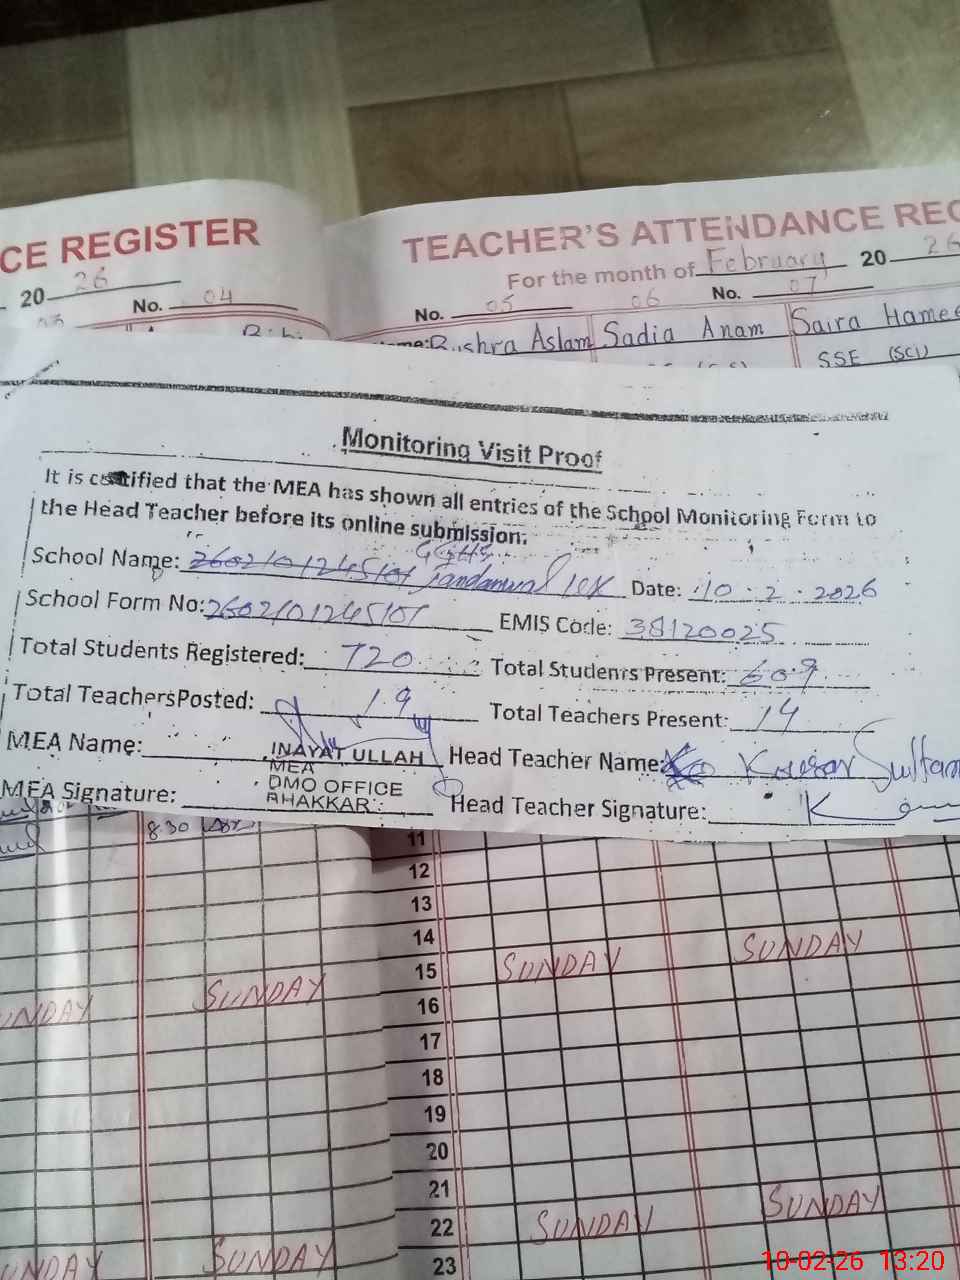 CE REGISTER
20 26
No. 04
TEACHER'S ATTENDANCE REC
For the month of February 20 26
No. 05 06 No. 07
Bushra Aslam Sadia Anam Saira Hamee
SSE (SCI)
Monitoring Visit Proof
It is certified that the MEA has shown all entries of the School Monitoring Form to
the Head Teacher before its online submission.
School Name: GGHS Jandanwal Date: 10.2.2026
School Form No: 2602101245101 EMIS Code: 38120025
Total Students Registered: 720 Total Students Present: 609
Total TeachersPosted: 19 Total Teachers Present: 14
MEA Name: INAYAT ULLAH Head Teacher Name: Kousar Sultan
MEA
DMO OFFICE
BHAKKAR
MEA Signature: Head Teacher Signature:
8.30
11
12
13
14
SUNDAY
15 SUNDAY
UNDAY SUNDAY 16
17
18
19
20
21
SUNDAY
22 SUNDAY
UNDAY SUNDAY 23
10-02-26 13:20